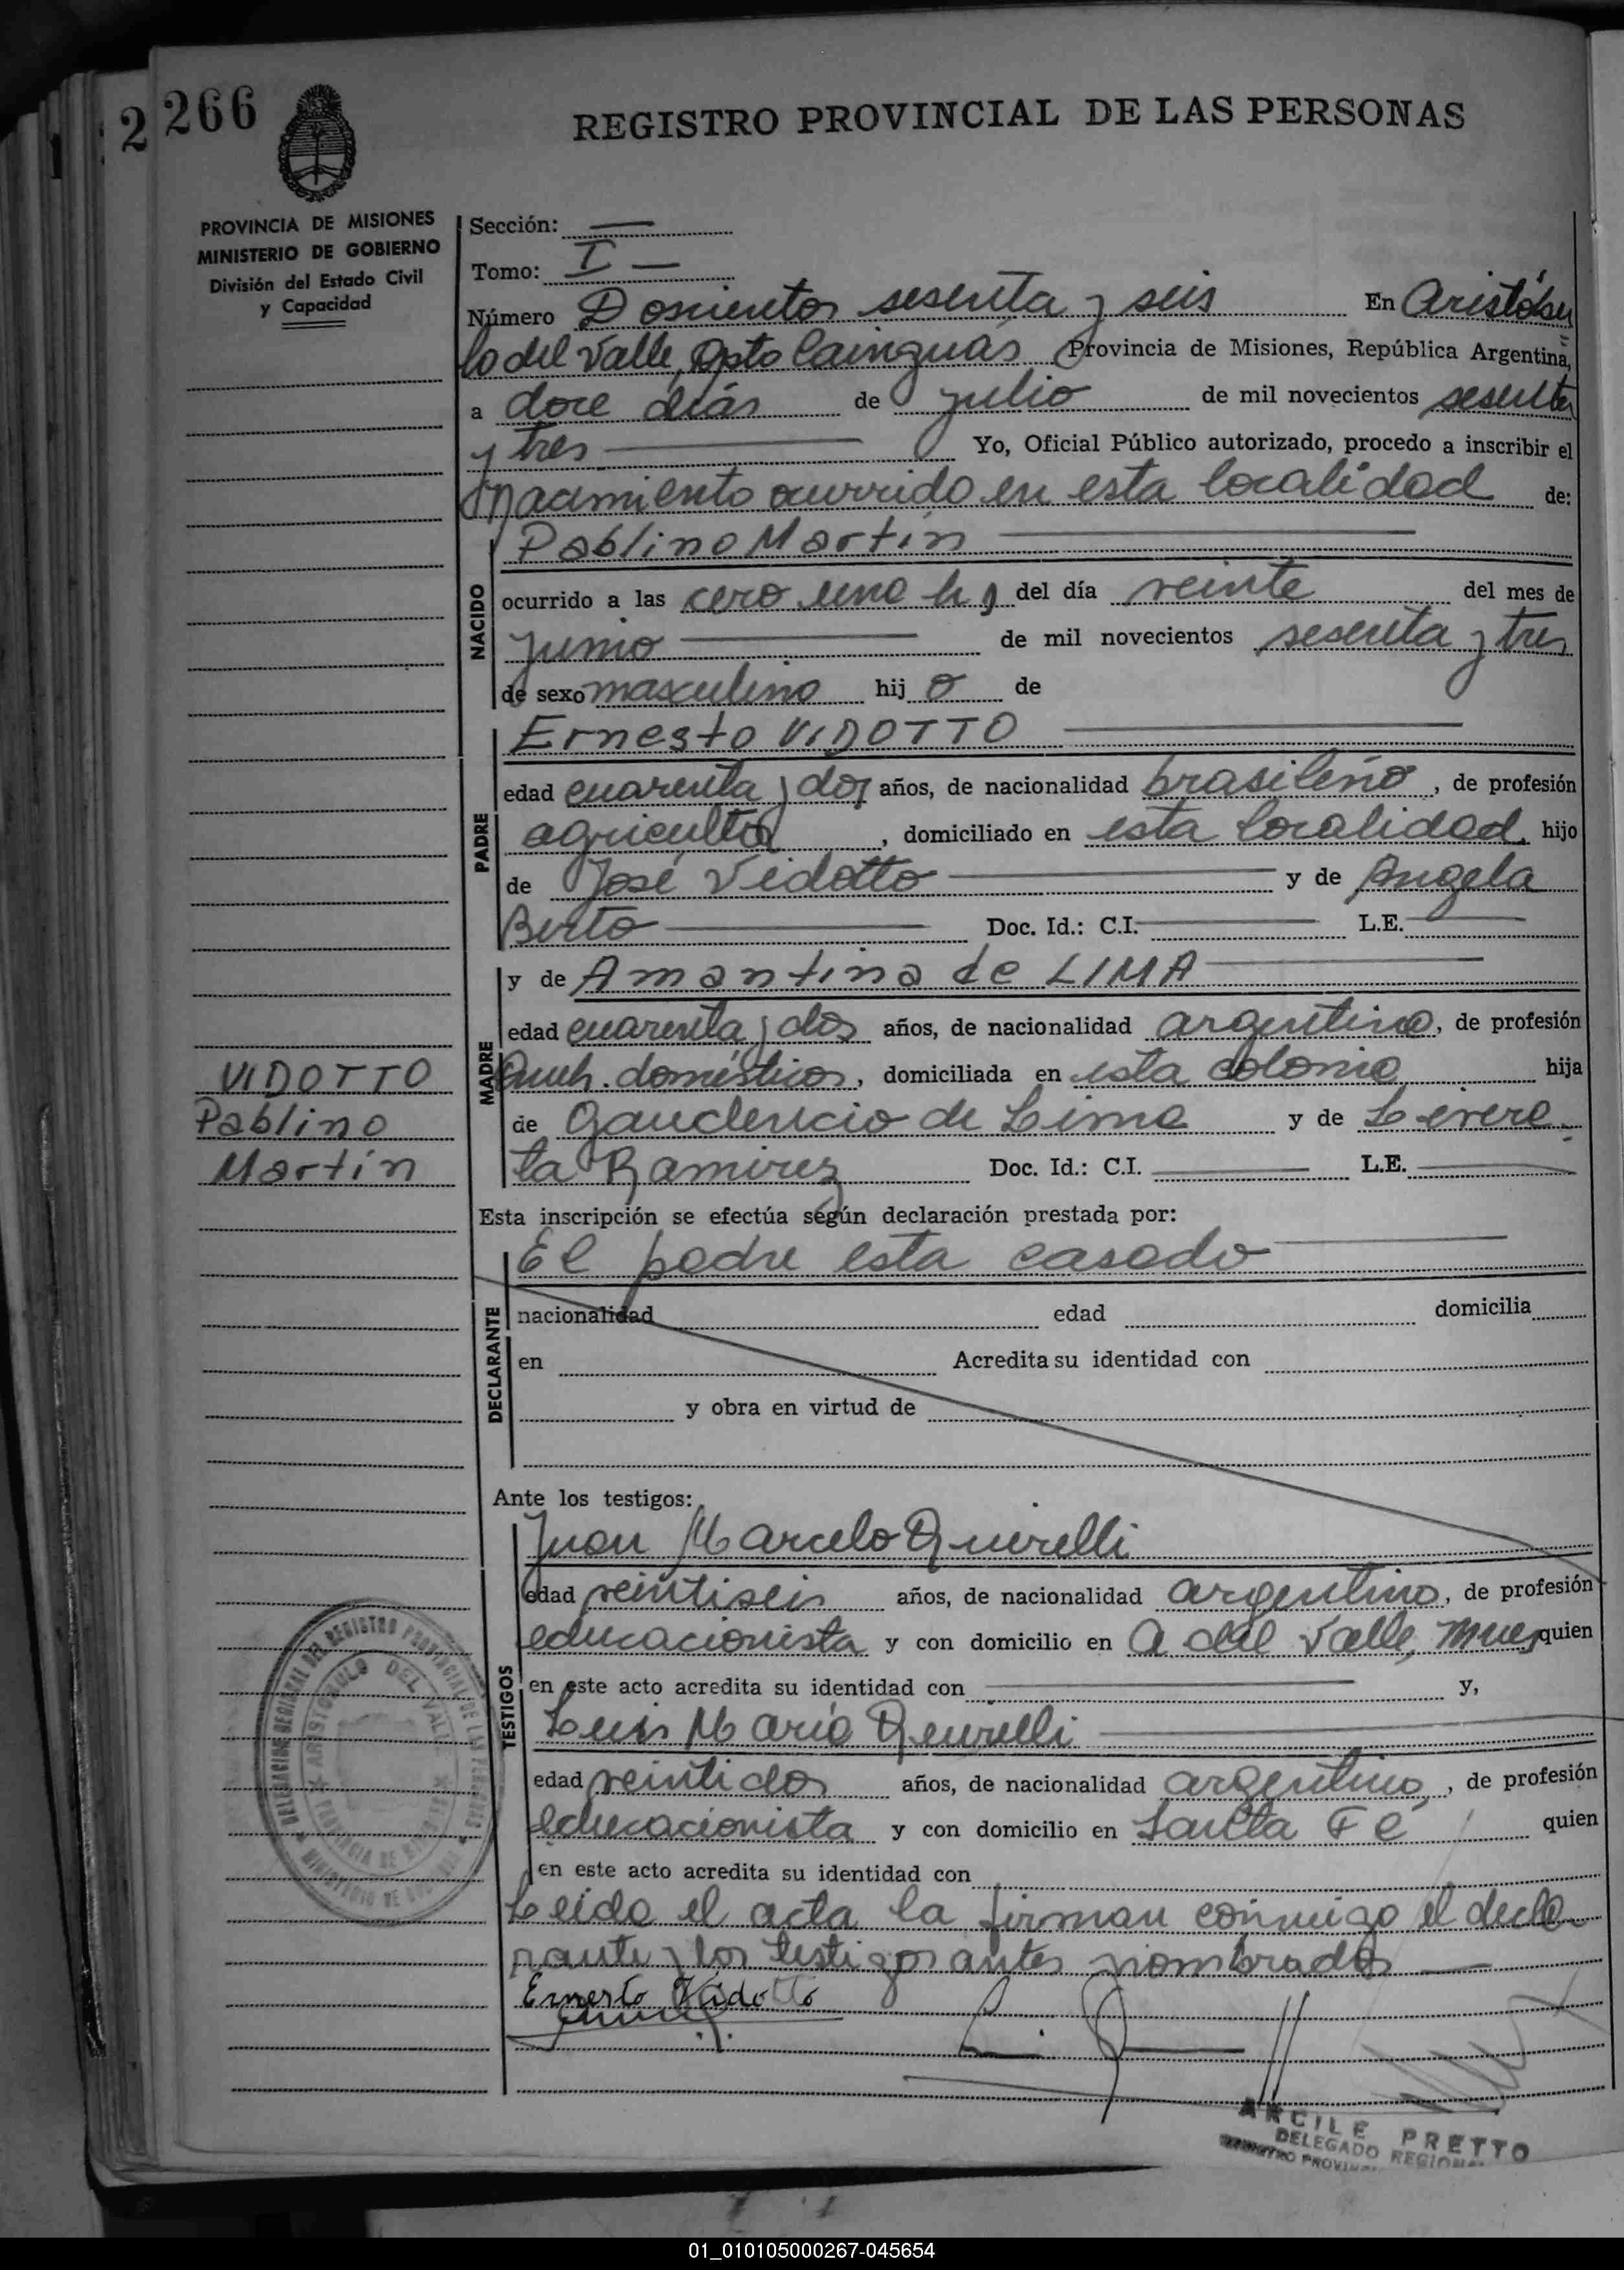 2 266
REGISTRO PROVINCIAL DE LAS PERSONAS
PROVINCIA DE MISIONES
MINISTERIO DE GOBIERNO
División del Estado Civil
y Capacidad
Sección: —
Tomo: I —
Número Doscientos sesenta y seis En Aristóbu
lo del Valle, Dpto Cainguás Provincia de Misiones, República Argentina,
a doce días de julio de mil novecientos sesenta
y tres — Yo, Oficial Público autorizado, procedo a inscribir el
nacimiento ocurrido en esta localidad de:
NACIDO
Pablino Martín —
ocurrido a las cero una hs del día veinte del mes de
junio — de mil novecientos sesenta y tres
de sexo masculino hij o de
PADRE
Ernesto VIDOTTO —
edad cuarenta y dos años, de nacionalidad brasileño, de profesión
agricultor, domiciliado en esta localidad, hijo
de José Vidotto — y de Angela
Berto — Doc. Id.: C.I. — L.E. —
MADRE
y de Amantina de LIMA —
edad cuarenta y dos años, de nacionalidad argentina, de profesión
Queh. domésticos, domiciliada en esta colonia hija
de Gaudencio de Lima y de
ta Ramirez Doc. Id.: C.I. — L.E. —
VIDOTTO
Pablino
Martín
Esta inscripción se efectúa según declaración prestada por:
DECLARANTE
El padre esta casado —
nacionalidad edad domicilia
en Acredita su identidad con
y obra en virtud de
Ante los testigos:
TESTIGOS
Juan Marcelo Quirelli
edad veintiseis años, de nacionalidad argentino, de profesión
educacionista y con domicilio en A del Valle, Mnes quien
en este acto acredita su identidad con — y,
Luis María Quirelli —
edad veintidos años, de nacionalidad argentino, de profesión
educacionista y con domicilio en Santa Fé quien
en este acto acredita su identidad con
Leida el acta la firman conmigo el decla-
rante y los testigos antes nombrados —
Ernesto Vidotto
DELEGACION REGIONAL DEL REGISTRO PROVINCIAL DE LAS PERSONAS
ARISTOBULO DEL VALLE
PROVINCIA DE MISIONES
MINISTERIO DE GOBIERNO
ARCILE PRETTO
DELEGADO REGIONAL
01_010105000267-045654